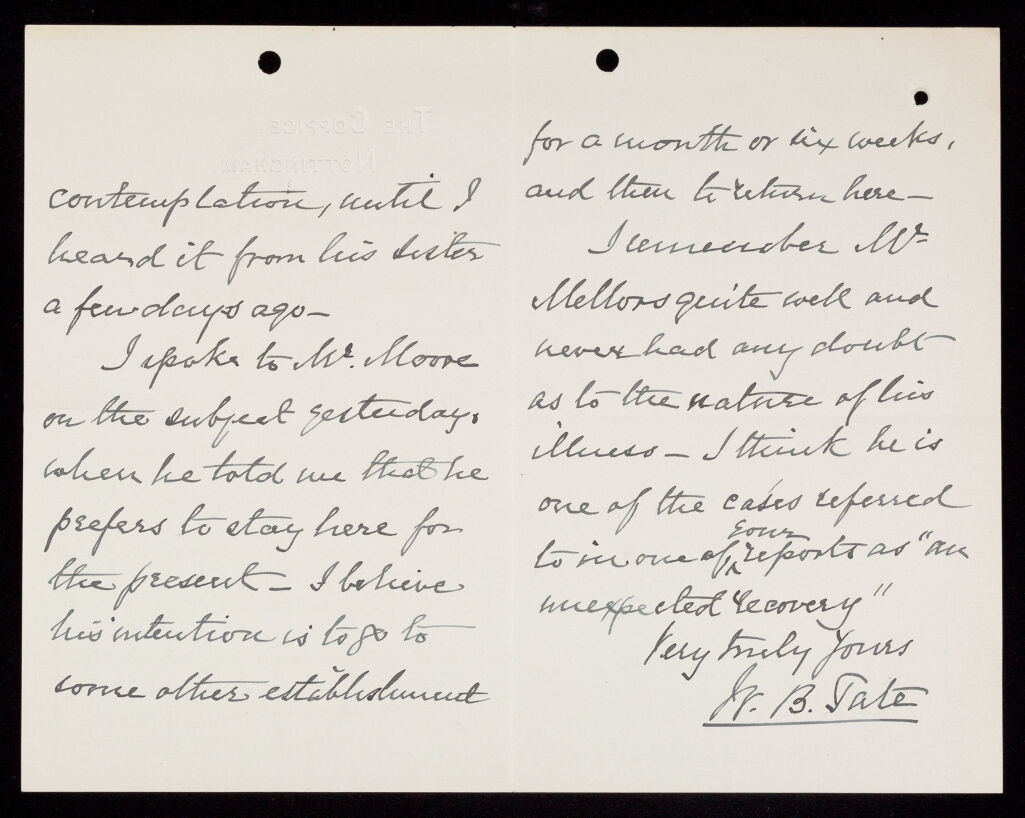 THE COPPICE,
NOTTINGHAM.
contemplation, until I
heard it from his sister
a few days ago—
I spoke to Mr. Moore
on the subject yesterday,
when he told me that he
prefers to stay here for
the present— I believe
his intention is to go to
some other establishment
for a month or six weeks,
and then to return here—
I remember Mr
Mellors quite well and
never had any doubt
as to the nature of his
illness— I think he is
one of the cases referred
your
to in one of ^ reports as "an
unexpected recovery"
Very truly yours
W. B. Tate